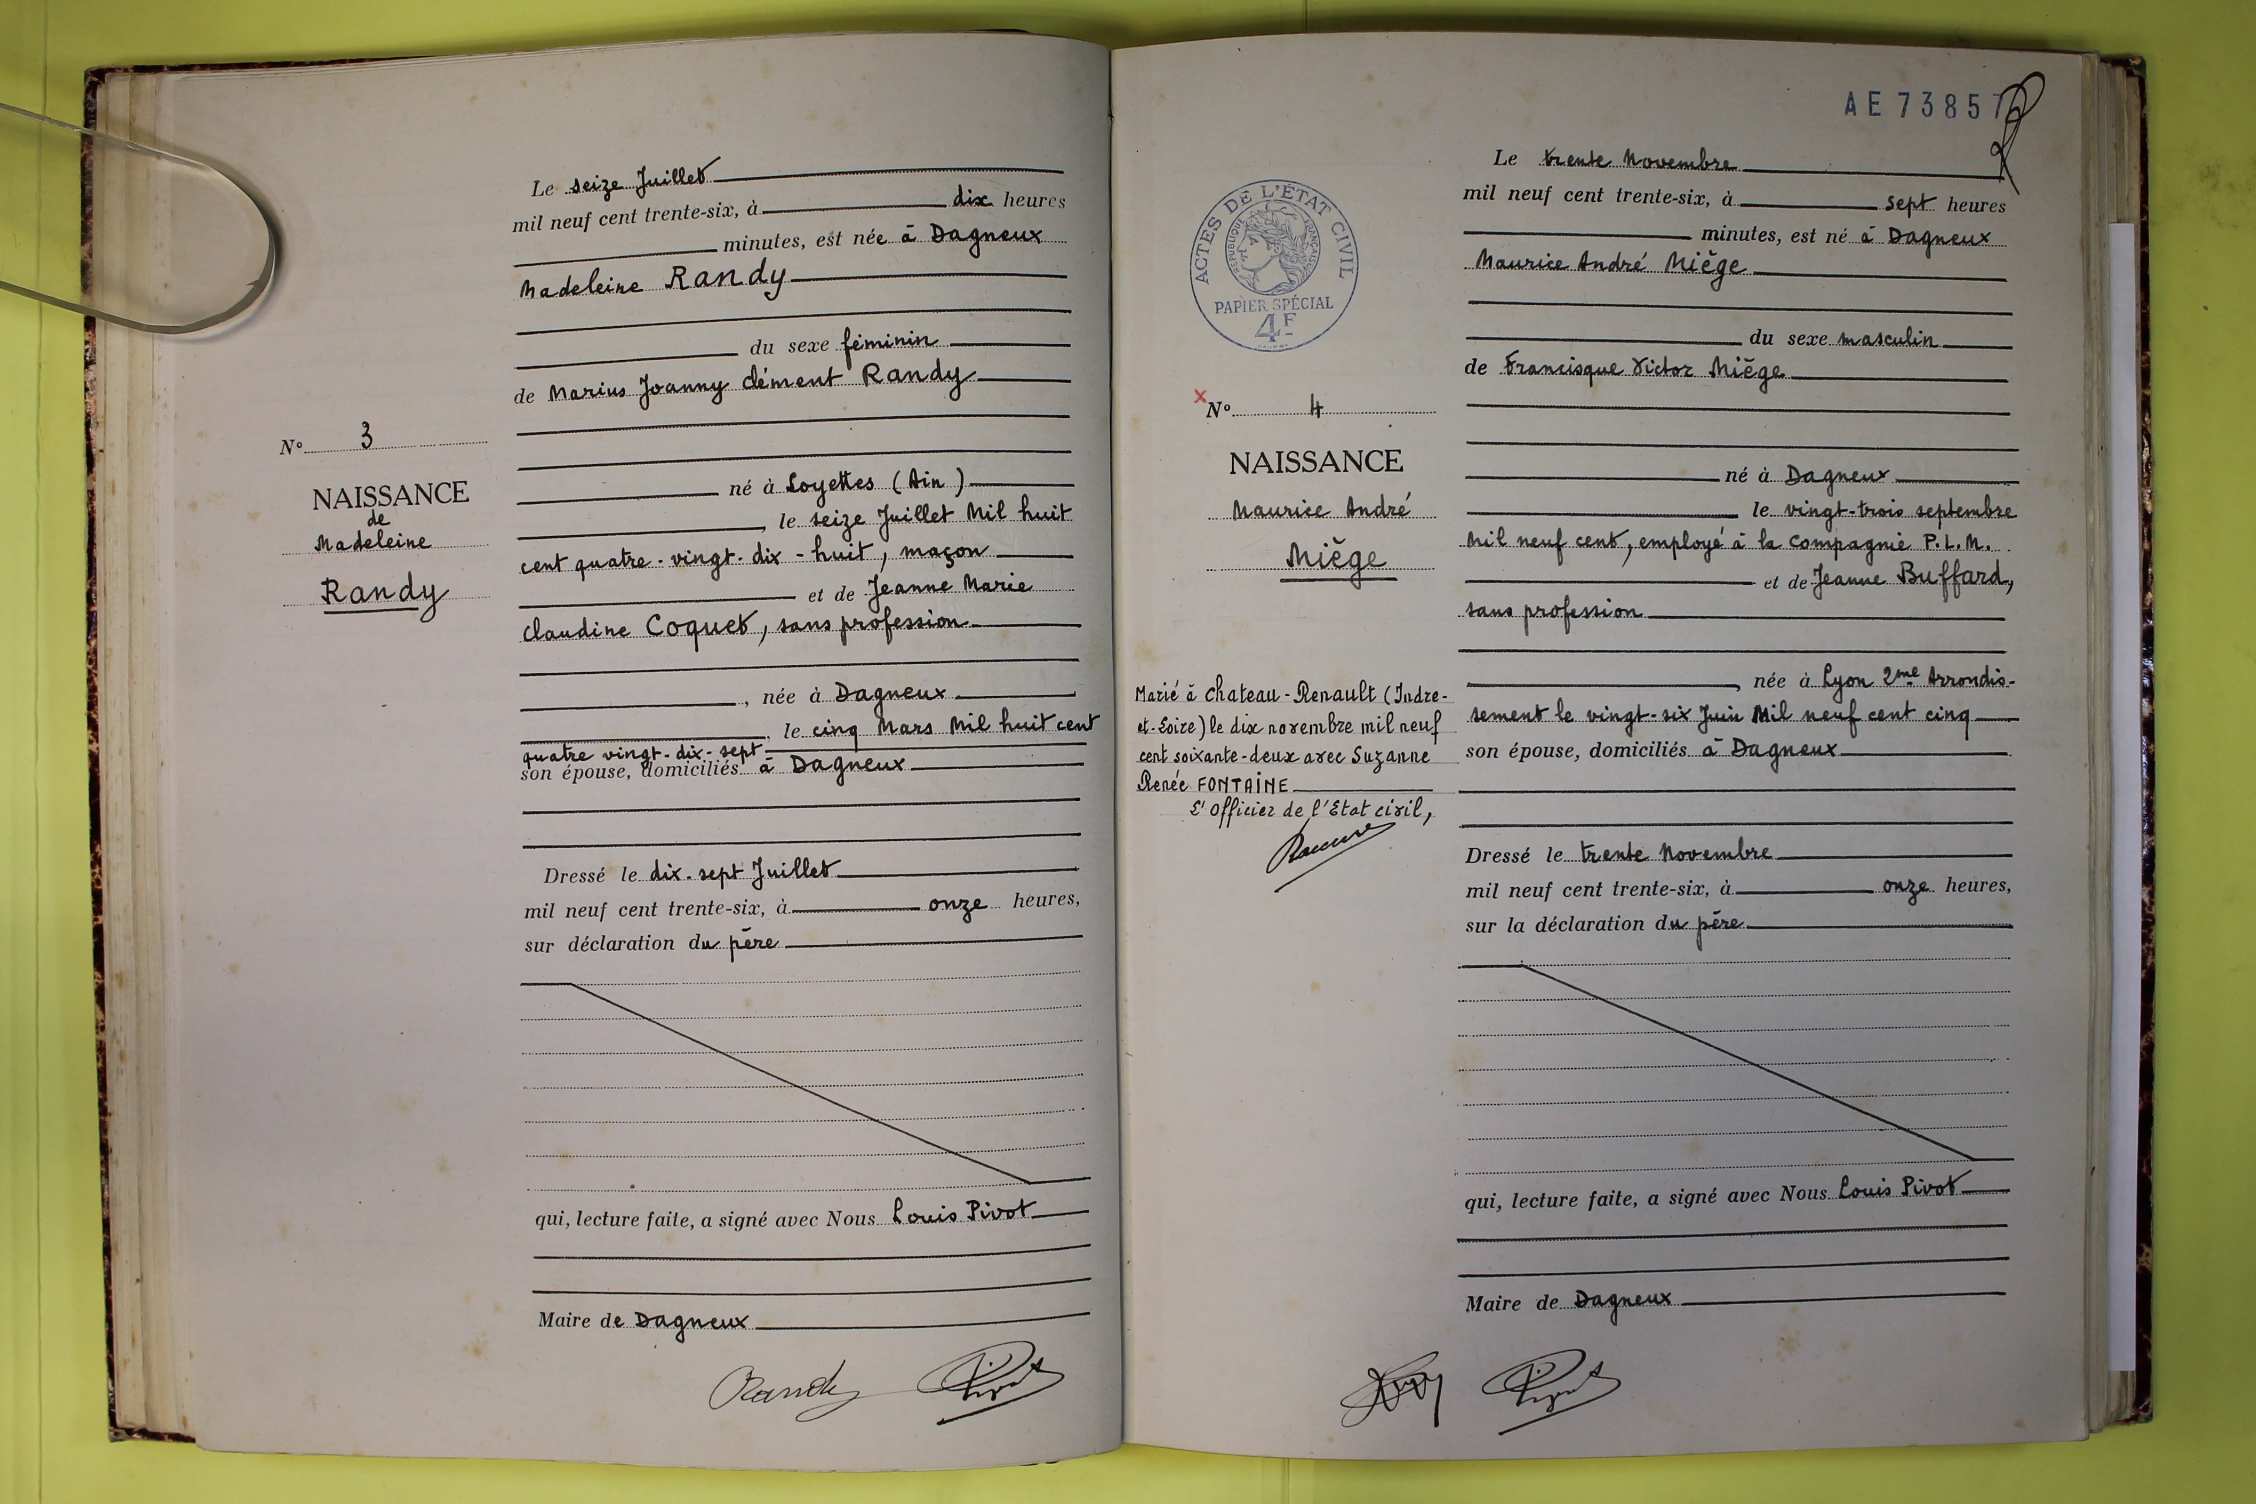 Le seize Juillet
mil neuf cent trente-six, à dix heures
minutes, est née à Dagneux
Madeleine Randy
du sexe féminin
de Marius Joanny Clément Randy
N° 3
né à Loyettes (Ain)
NAISSANCE
de
Madeleine
Randy
, le seize Juillet Mil huit
cent quatre-vingt-dix-huit, maçon
et de Jeanne Marie
Claudine Coquet, sans profession
, née à Dagneux
, le cinq Mars Mil huit cent
quatre vingt-dix-sept
son épouse, domiciliés à Dagneux
Dressé le dix-sept Juillet
mil neuf cent trente-six, à onze heures,
sur déclaration du père
qui, lecture faite, a signé avec Nous Louis Pivot
Maire de Dagneux
Randy Pivot
AE 73857
Le trente Novembre
mil neuf cent trente-six, à sept heures
minutes, est né à Dagneux
Maurice André Miège
du sexe masculin
de Francisque Victor Miège
ACTES DE L'ÉTAT CIVIL
RÉPUBLIQUE FRANÇAISE
PAPIER SPÉCIAL
4F
x N° 4
NAISSANCE
Maurice André
Miège
né à Dagneux
le vingt-trois septembre
Mil neuf cent, employé à la Compagnie P.L.M.
et de Jeanne Buffard,
sans profession
, née à Lyon 2me Arrondis-
sement le vingt-six Juin Mil neuf cent cinq
son épouse, domiciliés à Dagneux
Marié à Chateau-Renault (Indre-
et-Loire) le dix novembre mil neuf
cent soixante-deux avec Suzanne
Renée FONTAINE
L'Officier de l'Etat civil,
Dressé le trente Novembre
mil neuf cent trente-six, à onze heures,
sur la déclaration du père
qui, lecture faite, a signé avec Nous Louis Pivot
Maire de Dagneux
Pivot